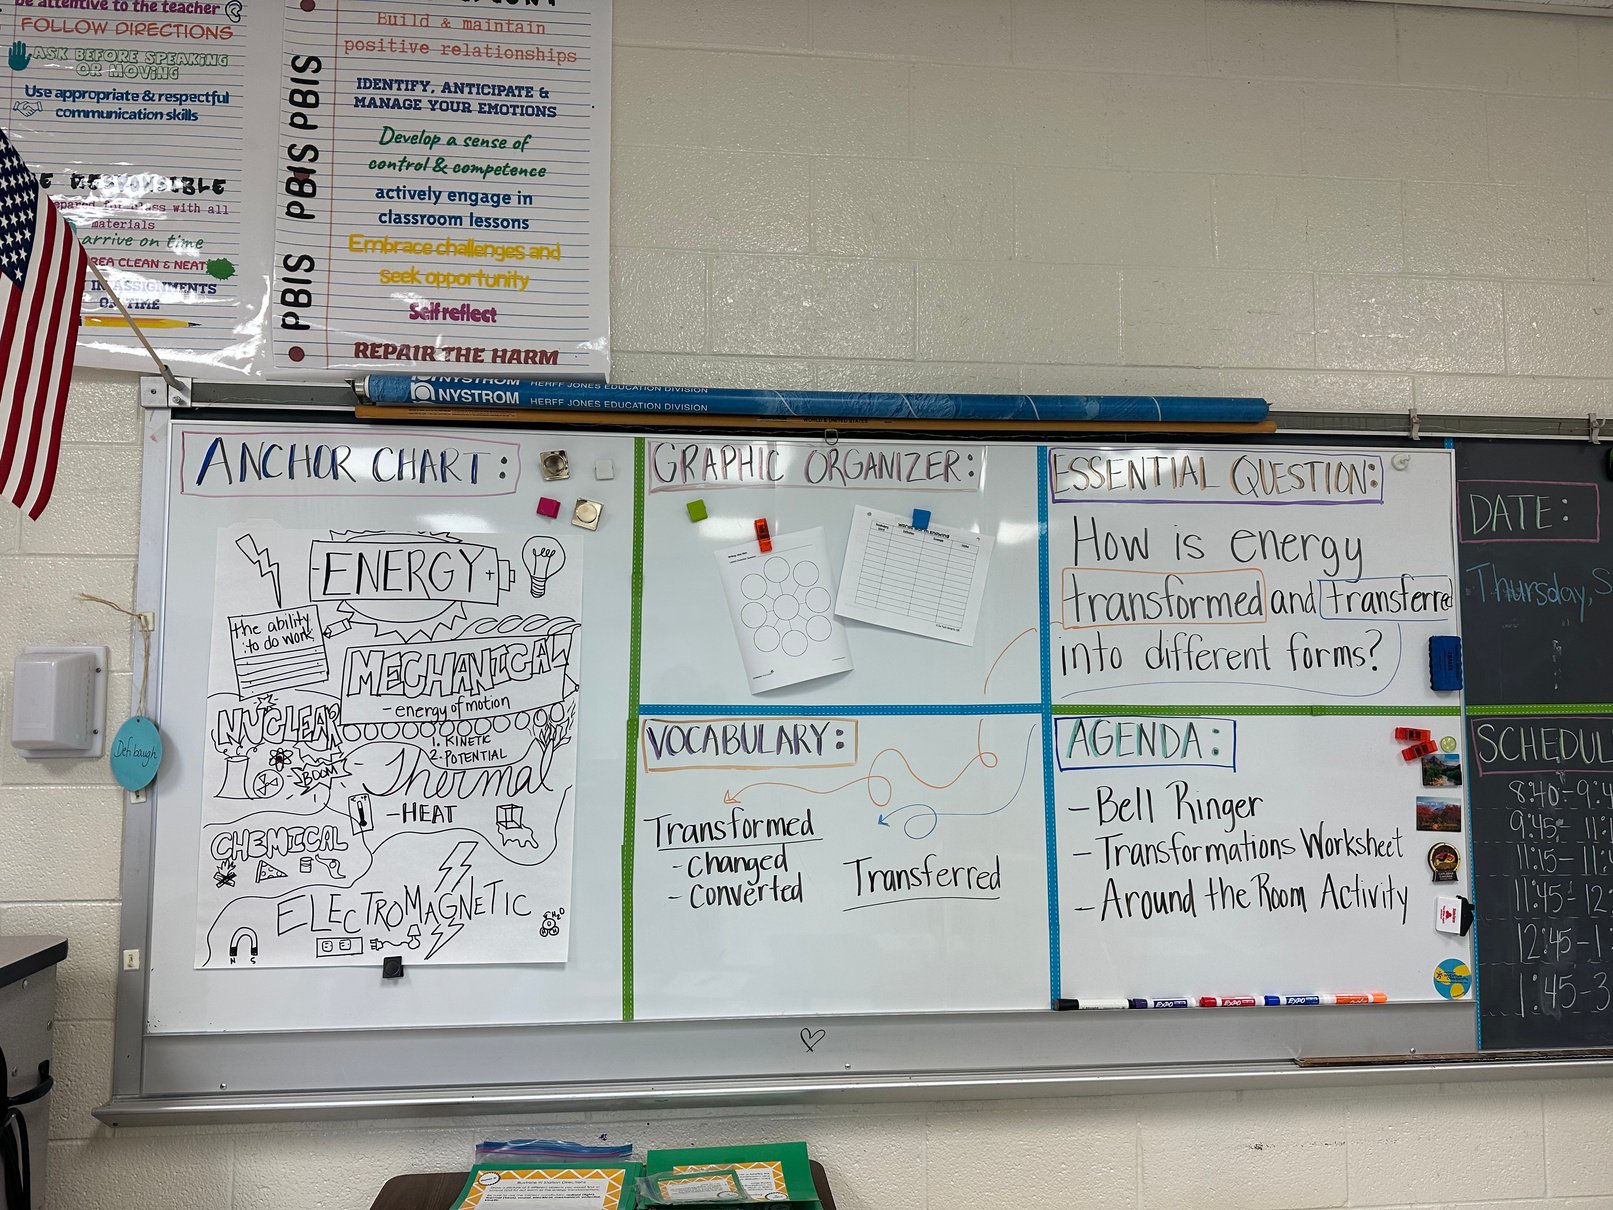 be attentive to the teacher
FOLLOW DIRECTIONS
ASK BEFORE SPEAKING
OR MOVING
Use appropriate & respectful
communication skills
RESPONSIBLE
class with all
materials
arrive on time
CLEAN & NEAT
IN ASSIGNMENTS
ON TIME
PBIS PBIS PBIS
Build & maintain
positive relationships
IDENTIFY, ANTICIPATE &
MANAGE YOUR EMOTIONS
Develop a sense of
control & competence
actively engage in
classroom lessons
Embrace challenges and
seek opportunity
Self reflect
REPAIR THE HARM
NYSTROM HERFF JONES EDUCATION DIVISION
NYSTROM HERFF JONES EDUCATION DIVISION
WORLD & UNITED STATES
ANCHOR CHART:
ENERGY
- +
the ability
to do work
MECHANICAL
- energy of motion
1. KINETIC
2. POTENTIAL
NUCLEAR
BOOM
Thermal
- HEAT
CHEMICAL
ELECTROMAGNETIC
N S
H2O
Defibaugh
GRAPHIC ORGANIZER:
VOCABULARY:
Transformed
- Changed
- Converted
Transferred
ESSENTIAL QUESTION:
How is energy
transformed and transferred
into different forms?
AGENDA:
- Bell Ringer
- Transformations Worksheet
- Around the Room Activity
EXPO
EXPO
EXPO
DATE:
Thursday, S
SCHEDUL
8:40-9:4
9:45- 11:1
11:15-11:4
11:45-12:
12:45-1:
1:45-3
Illustrate It! Station Directions